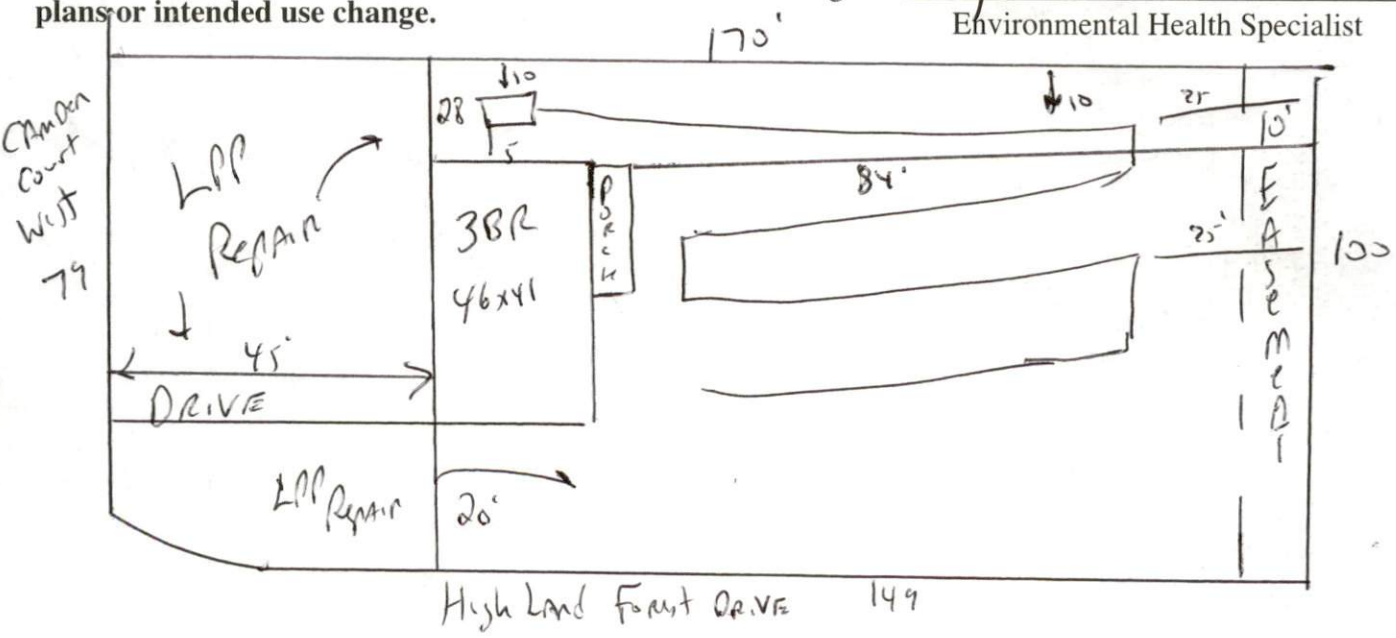 plans or intended use change.
Environmental Health Specialist
170'
CAmDen
Court
West
79
LPP
Repair
↓10
28
5
↓10
25
10'
EASemeNT
84'
3BR
46x41
PORCH
25'
100
45'
DRIVE
LPP Repair
20'
HighLand Forest DRIVE 149